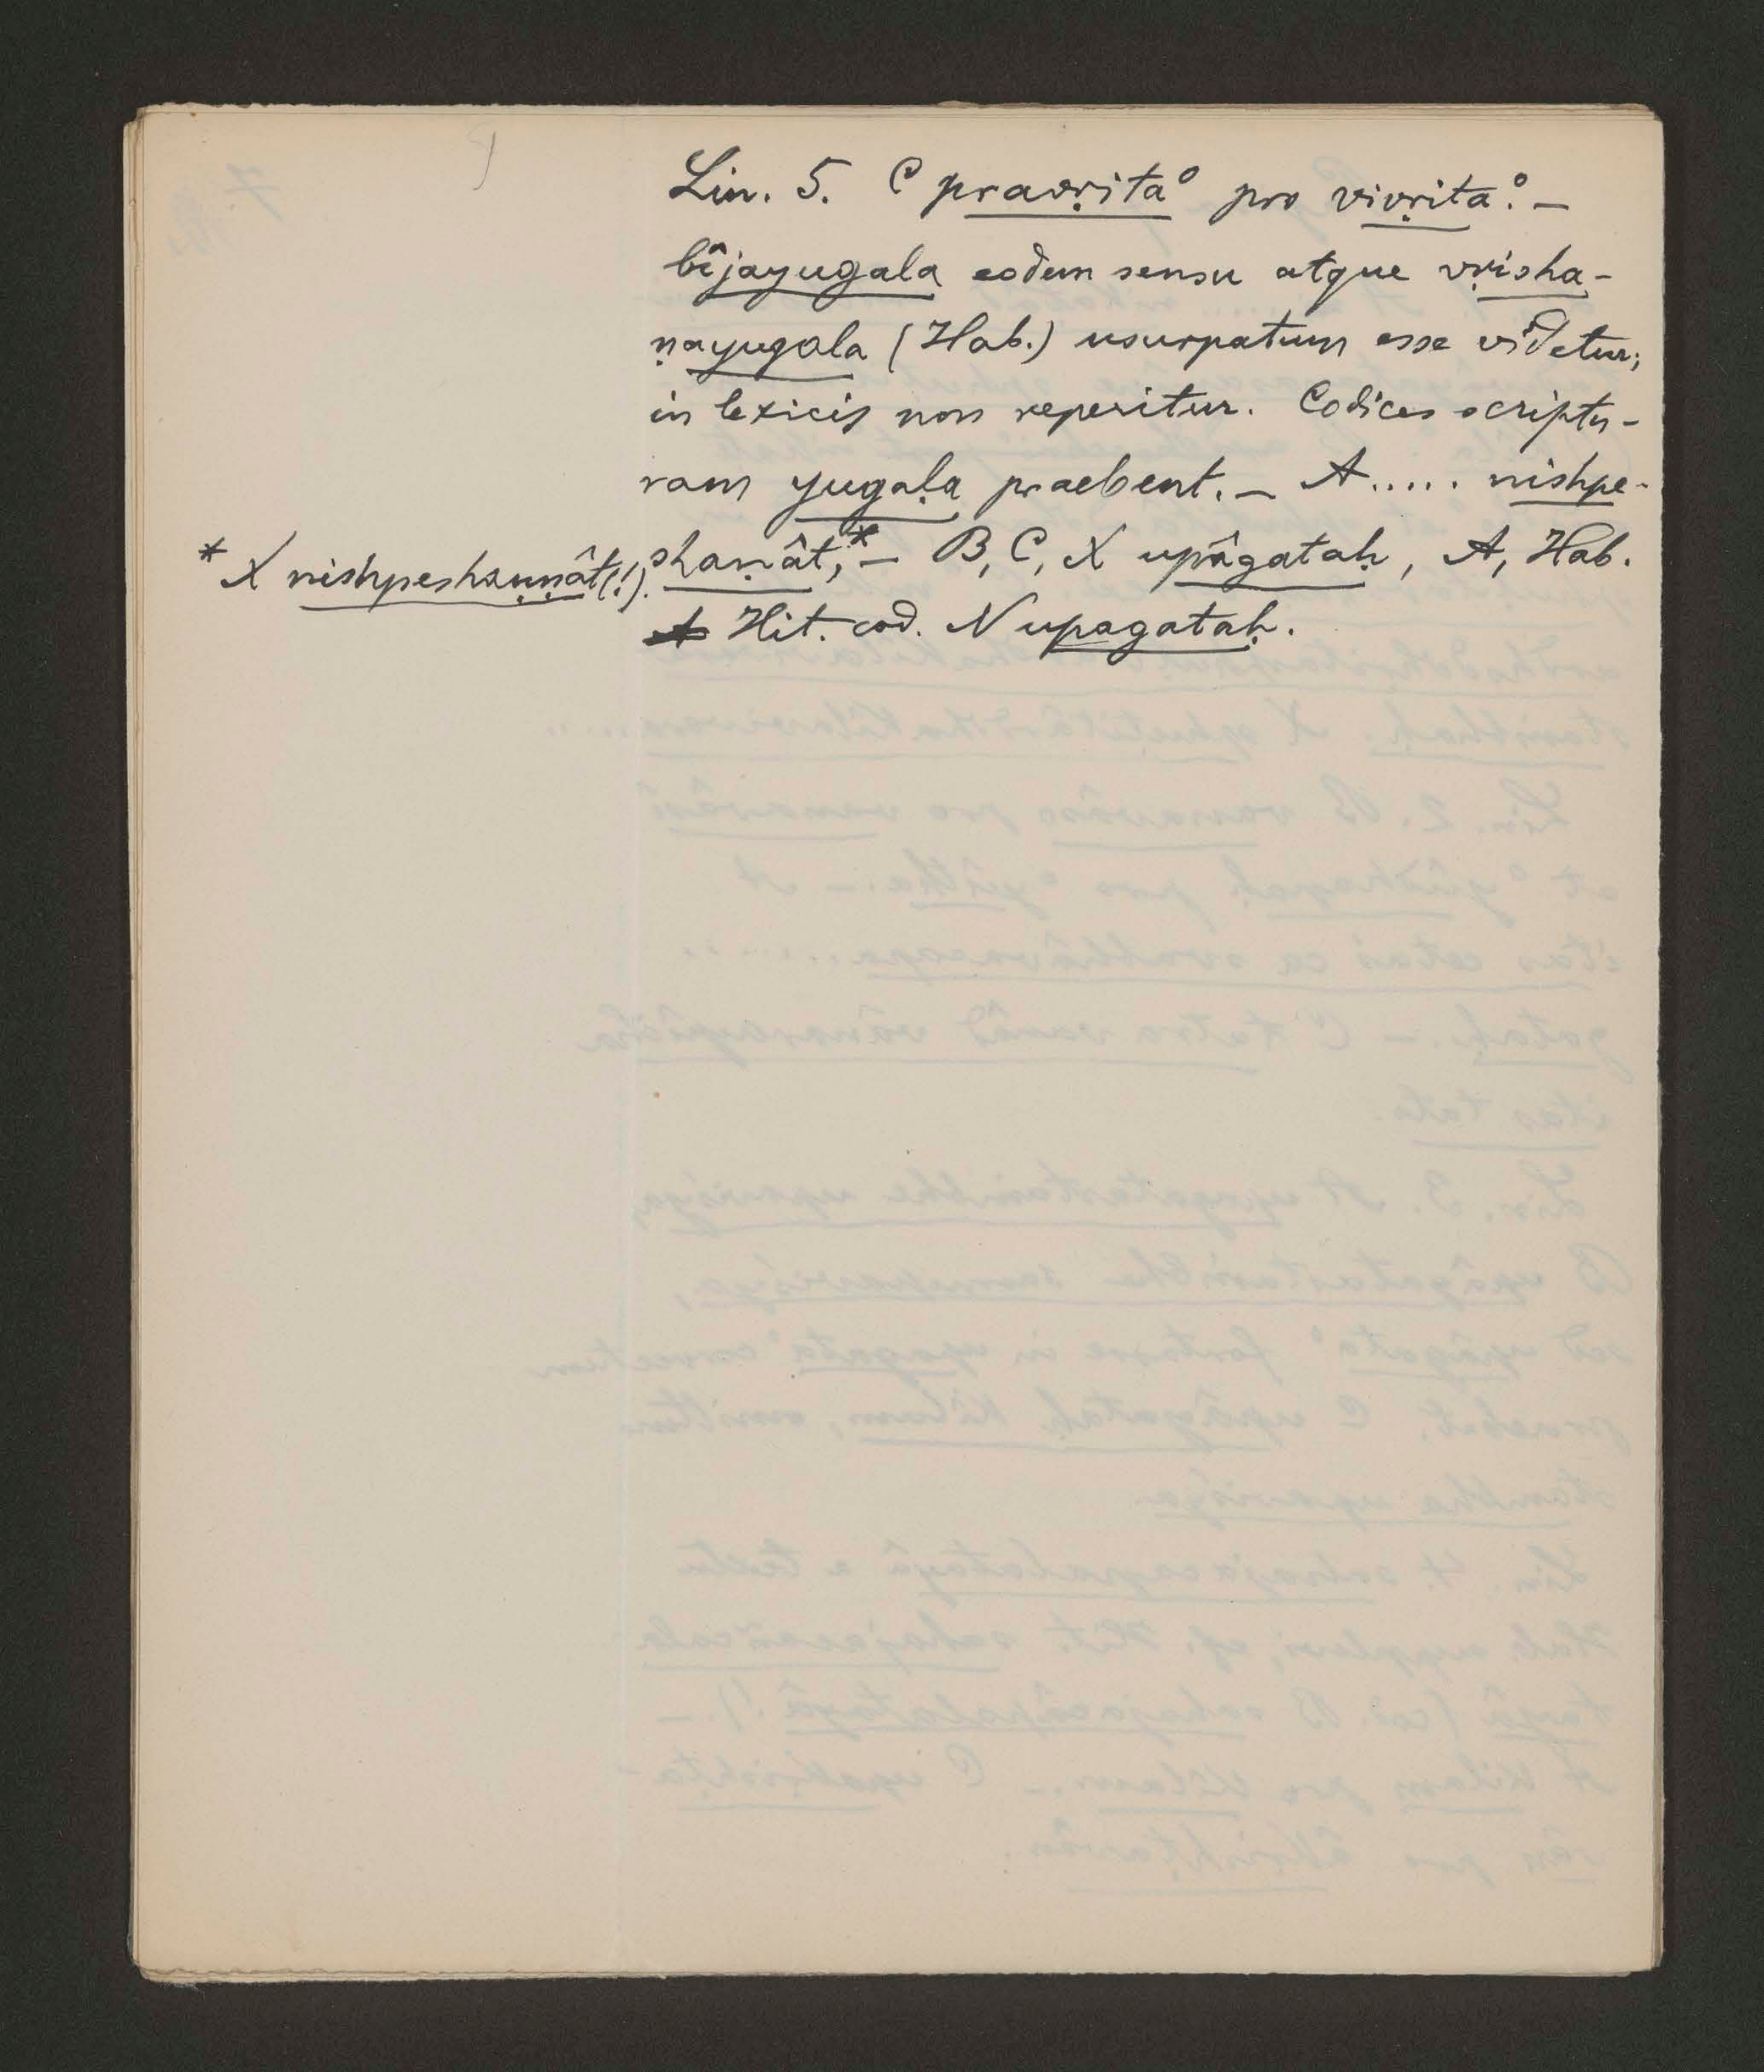 Lin. 5. C pravṛita° pro vivṛita°. –
bîjayugala eodem sensu atque vṛisha-
ṇayugala (Hab.) usurpatum esse videtur;
in lexicis non reperitur. Codices scriptu-
ram yugaḷa praebent. – A ..... nishpe-
shaṇât,* – B, C, X upâgataḥ, A, Hab.
* X nishpeshaṇṇât(!).
Hit. cod. N upagataḥ.